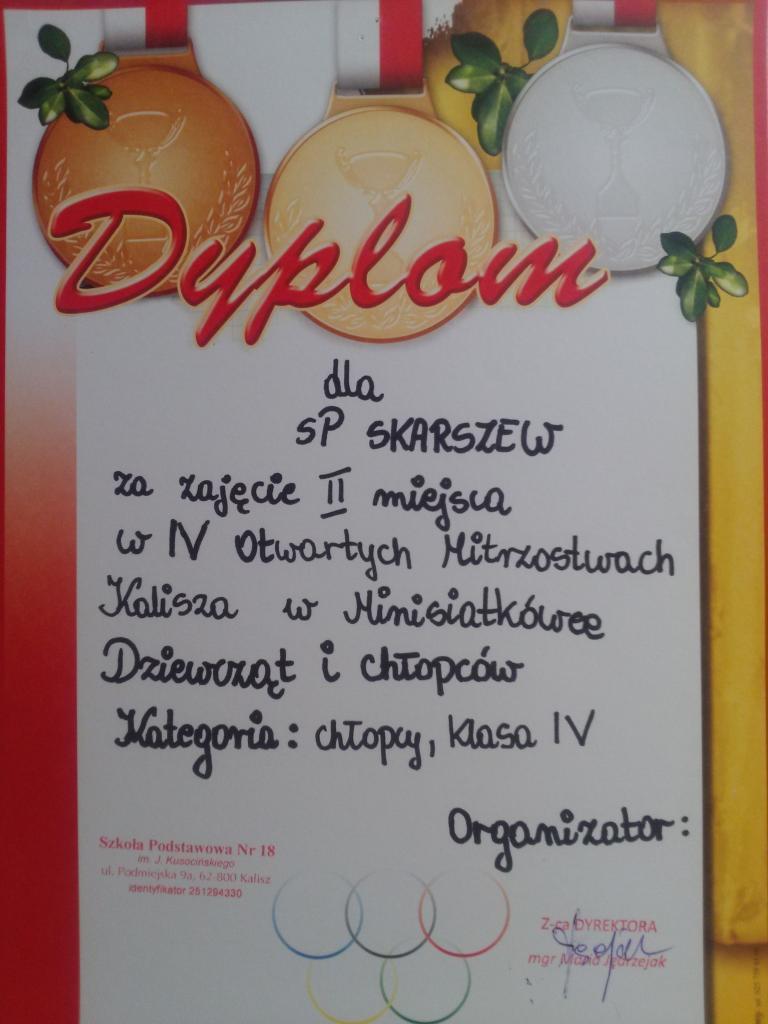 Dyplom
dla
SP SKARSZEW
za zajęcie II miejsca
w IV Otwartych Mitrzostwach
Kalisza w Minisiatkówce
Dziewcząt i chłopców
Kategoria: chłopcy, klasa IV
Organizator:
Szkoła Podstawowa Nr 18
im. J. Kusocińskiego
ul. Podmiejska 9a, 62-800 Kalisz
identyfikator 251294330
Z-ca DYREKTORA
mgr Maria Jędrzejak